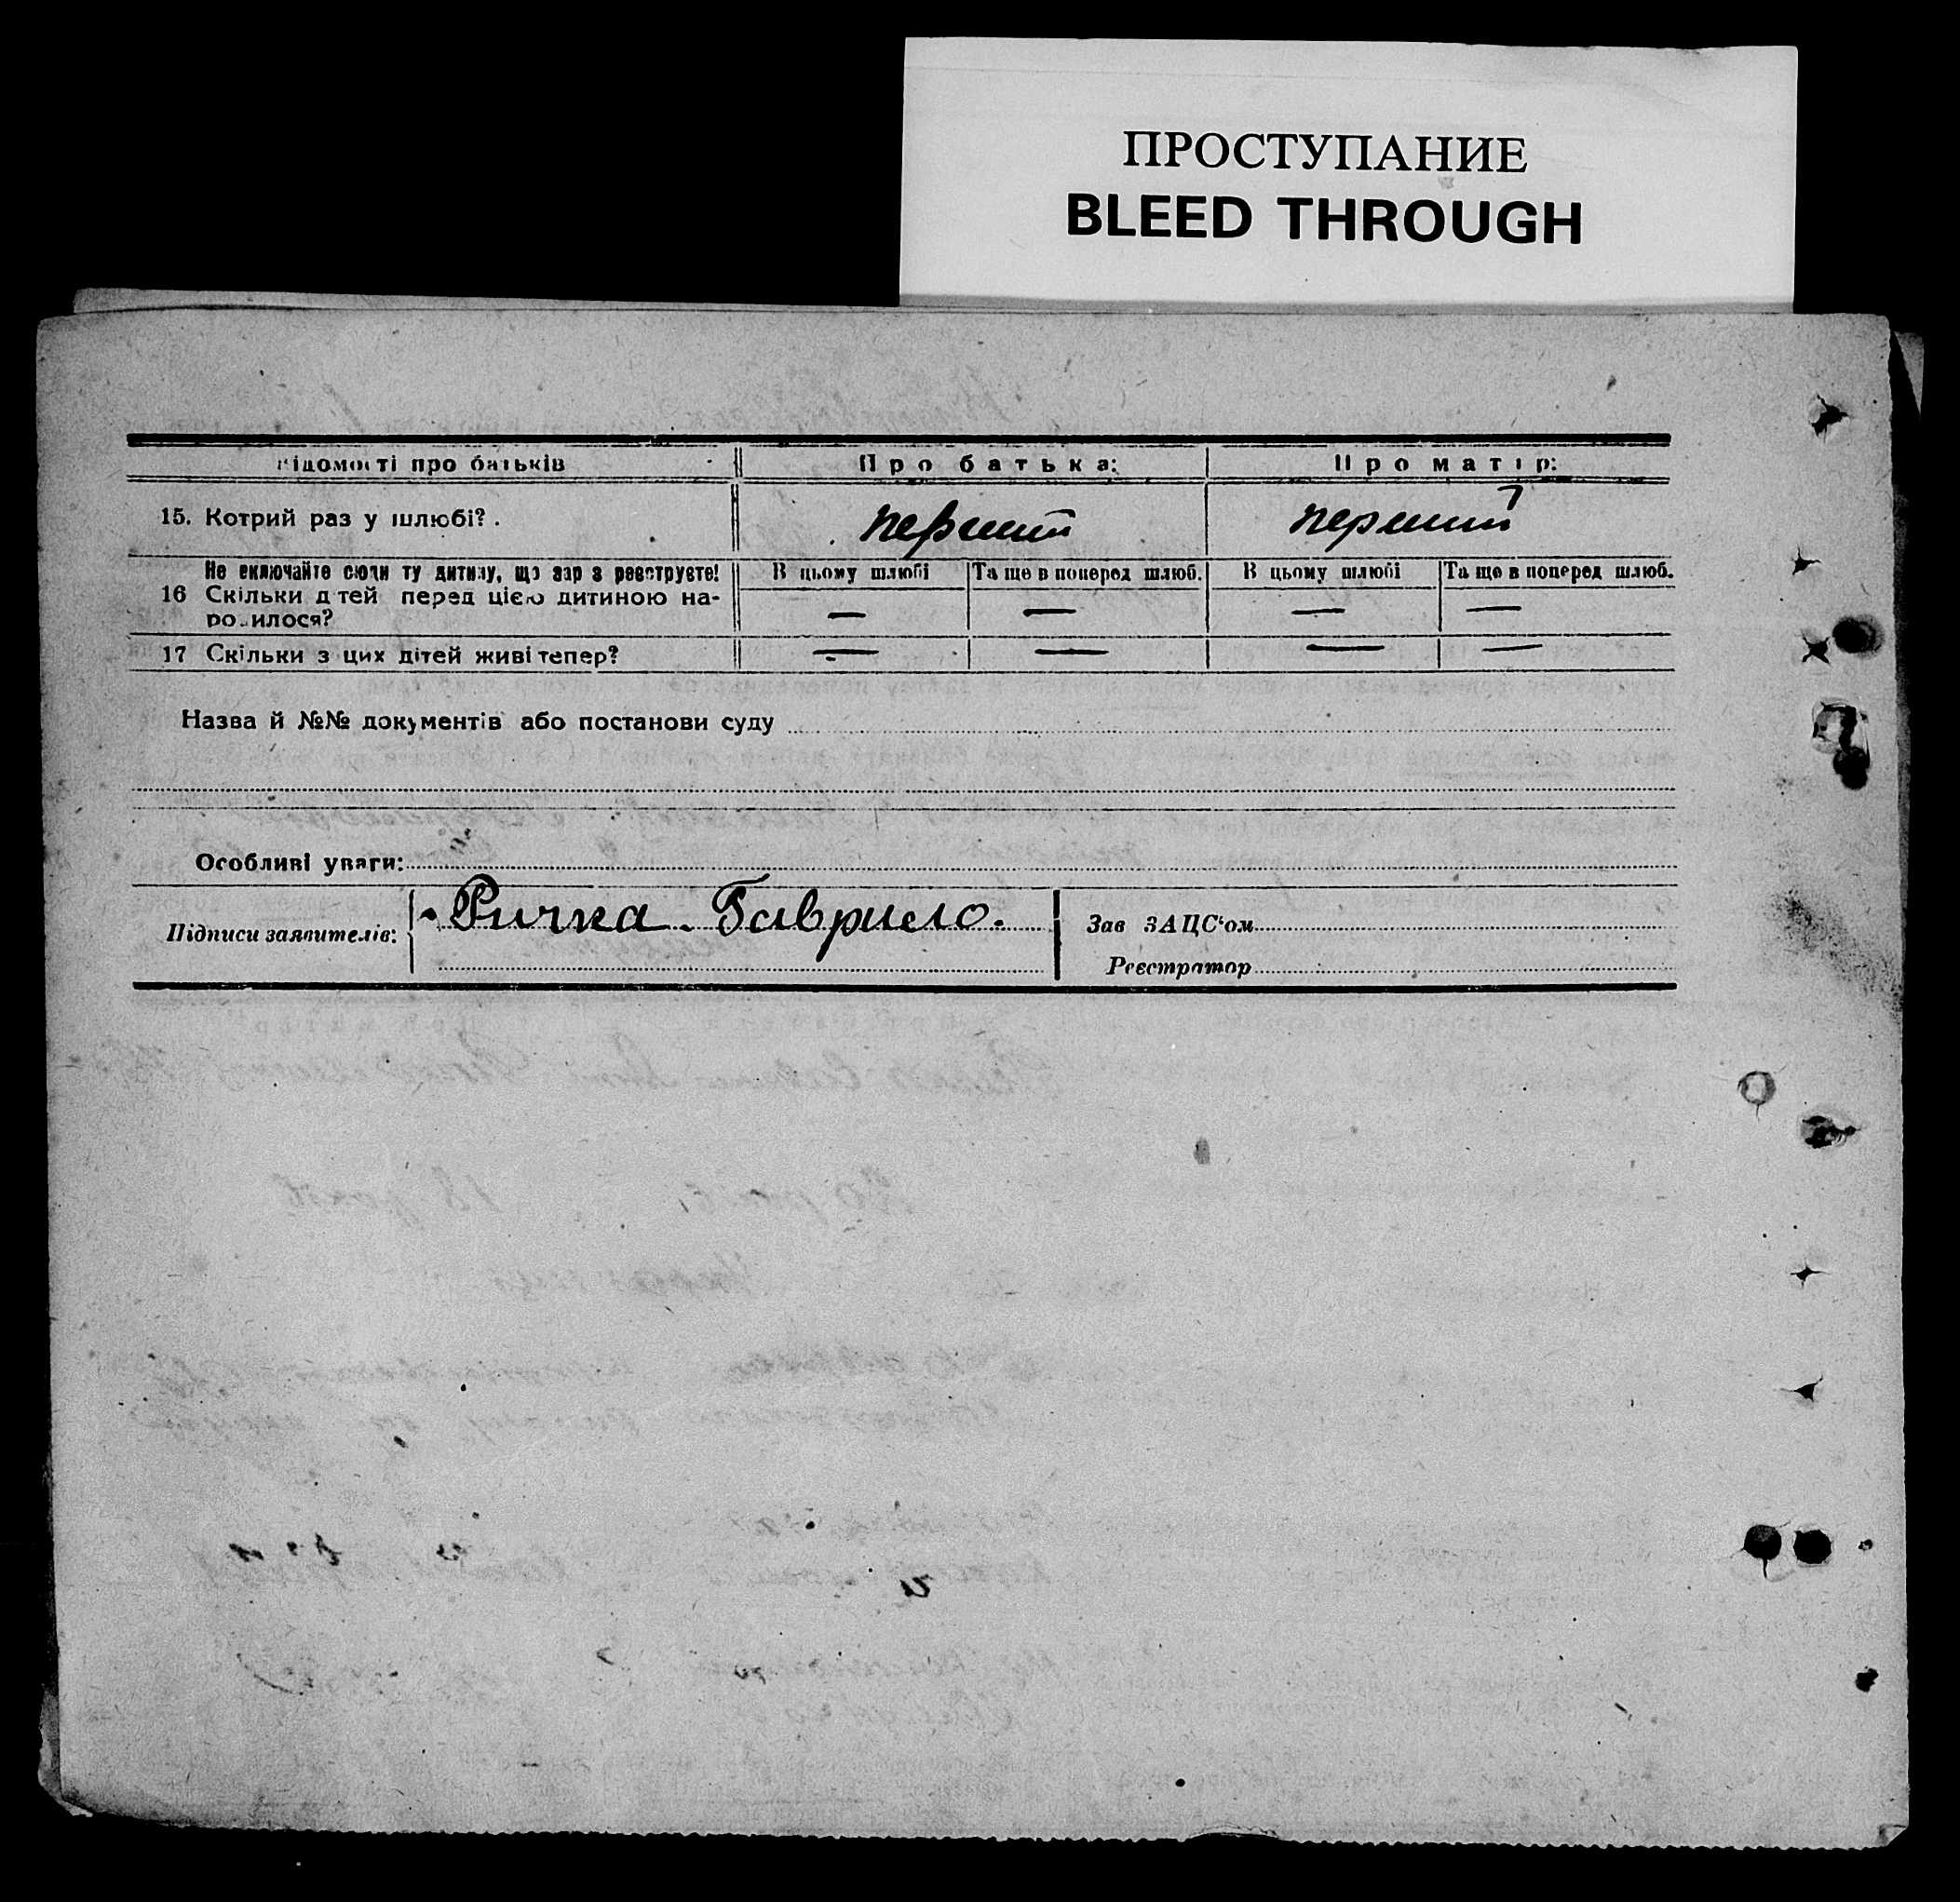 ПРОСТУПАНИЕ
BLEED THROUGH
Відомості про батьків Про батька: Про матір:
15. Котрий раз у шлюбі? перший перший
Не включайте сюди ту дитину, що зараз реєструєте! В цьому шлюбі Та ще в поперед шлюб. В цьому шлюбі Та ще в поперед шлюб.
16 Скільки дітей перед цією дитиною на- — — — —
родилося?
17 Скільки з цих дітей живі тепер? — — — —
Назва й №№ документів або постанови суду
Особливі уваги:
Підписи заявителів: Ричка Гаврило. Зав ЗАЦС'ом
Реєстратор